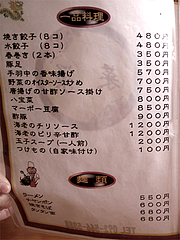 一品料理
焼き餃子(8コ) 480円
水餃子(8コ) 480円
春巻き(2本) 350円
豚足 350円
手羽中の香味揚げ 570円
野菜のオイスターソースナナめ 700円
唐揚げの甘酢ソース掛け 750円
八宝菜 800円
マーボー豆腐 850円
酢豚 900円
海老のチリソース 1200円
海老のピリ辛甘酢 1200円
玉子スープ(一人前) 200円
つけもの(自家味付け) 100円
麺類
ラーメン 550円
チャンポン 600円
焼きそば 680円
タンタン麺 680円